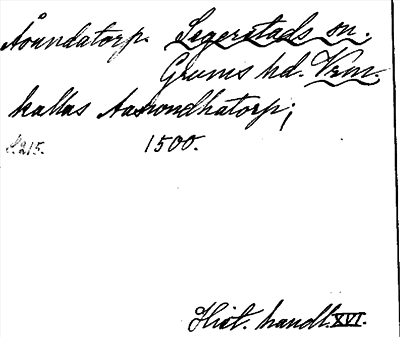 Åsundatorp. Segerstads sn.
Grums hd. Vrm.
kallas Aaswondhatorp;
s. 215. 1500.
Hist. handl. XVI.